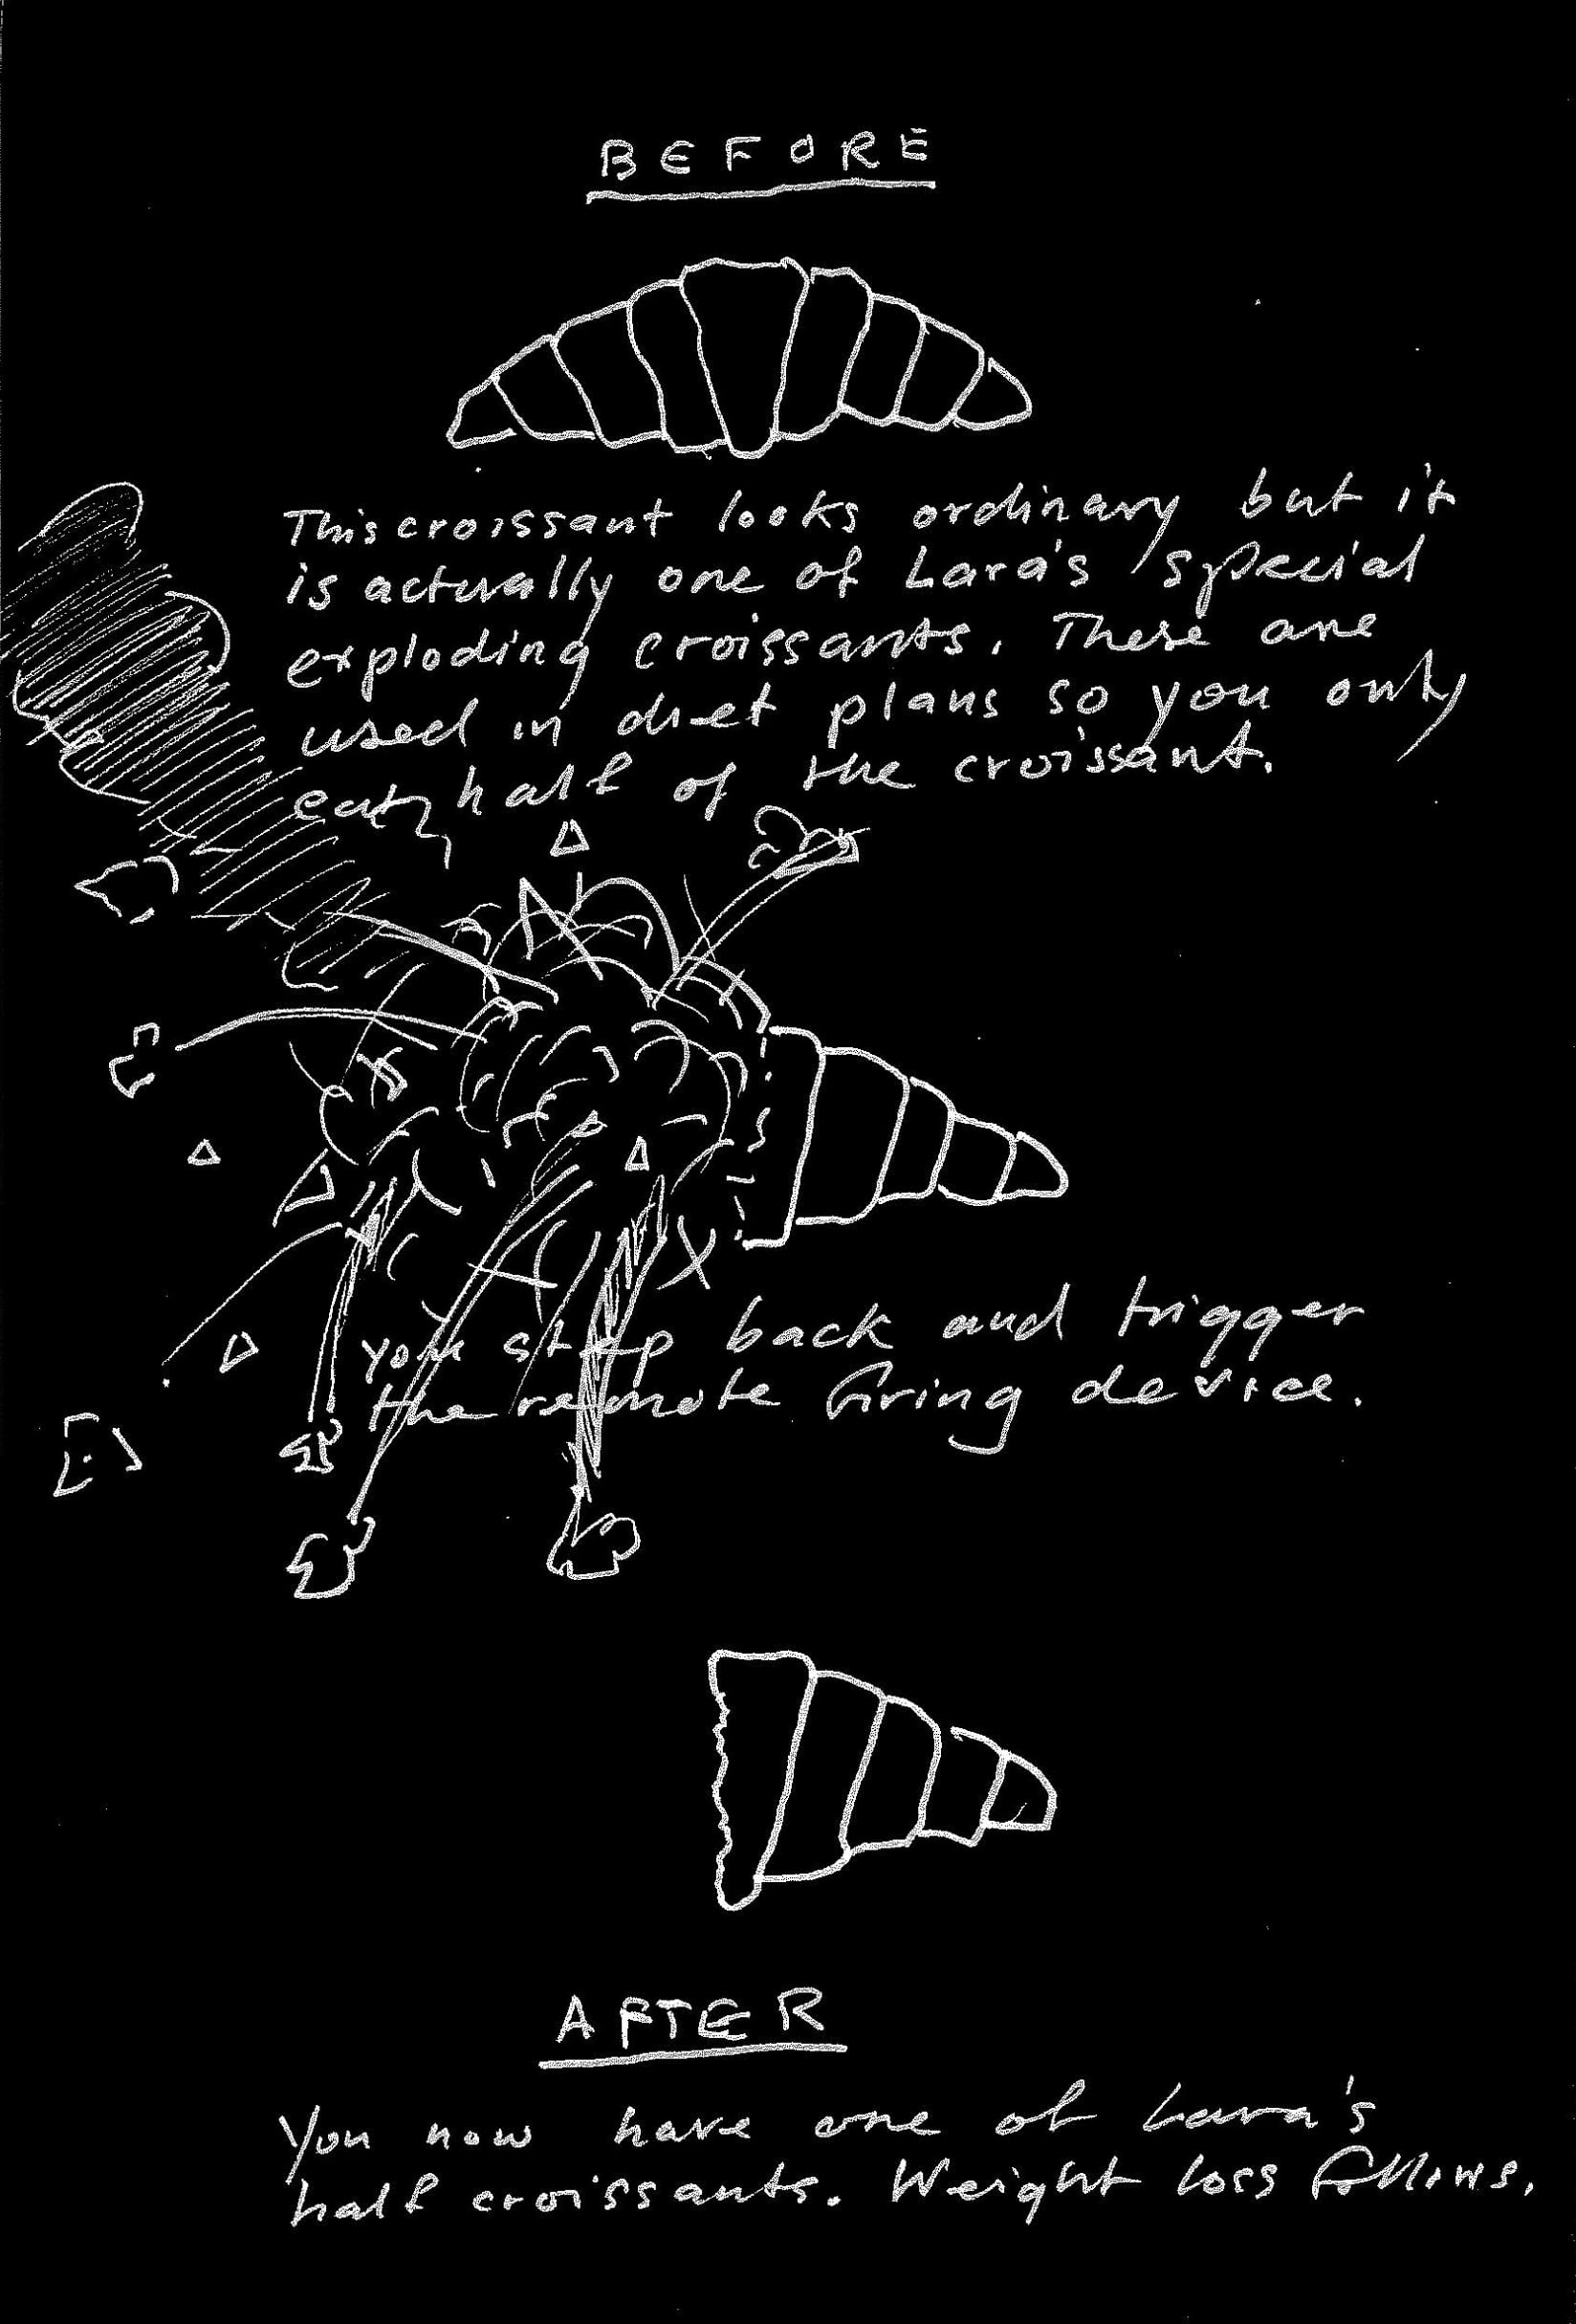 BEFORE
This croissant looks ordinary but it
is actually one of Lara's special
exploding croissants. These are
used in diet plans so you only
eat half of the croissant.
you step back and trigger
the remote firing device.
AFTER
You now have one of Lara's
half croissants. Weight loss follows.